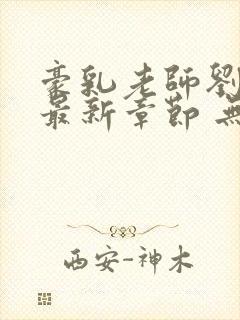 豪乳老師劉
最新章節 無
西安-神木